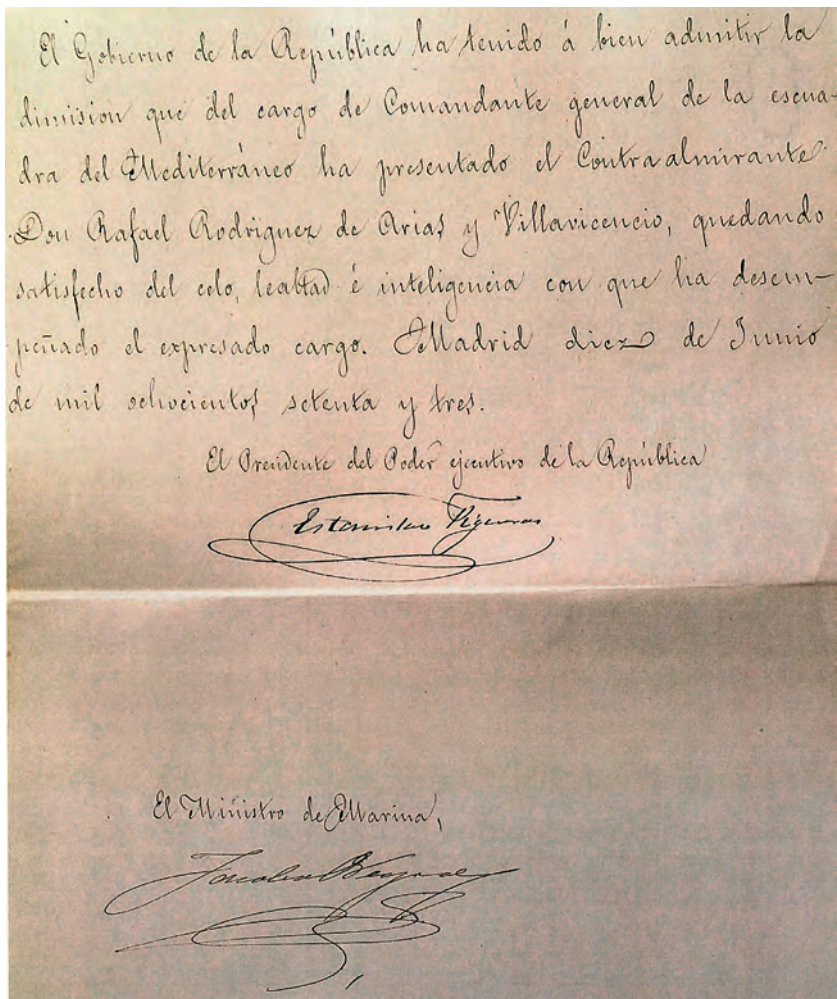 El Gobierno de la República ha tenido á bien admitir la
dimision que del cargo de Comandante general de la escua-
dra del Mediterráneo ha presentado el Contraalmirante
Don Rafael Rodriguez de Arias y Villavicencio, quedando
satisfecho del celo, lealtad é inteligencia con que ha desem-
peñado el expresado cargo. Madrid diez de Junio
de mil ochocientos setenta y tres.
El Presidente del Poder ejecutivo de la República
Estanislao Figueras
El Ministro de Marina,
Jacobo Oreyro